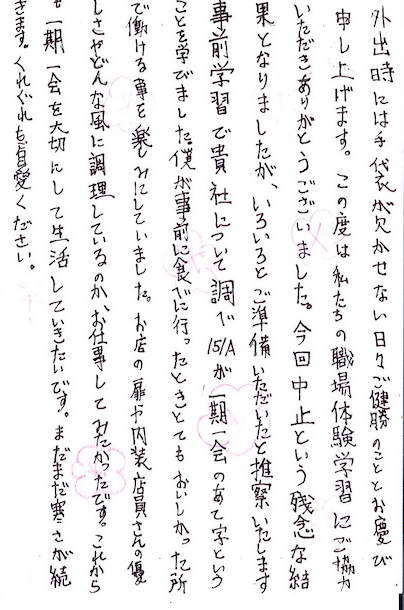 外出時には手袋が欠かせない日々ご健勝のこととお慶び
申し上げます。この度は私たちの職場体験学習にご協力
いただきありがとうございました。今回中止という残念な結
果となりましたが、いろいろとご準備いただいたと推察いたします
事前学習で貴社について調べ15/Aが一期一会のあて字という
ことを学びました。僕が事前に食べに行ったときとてもおいしかった所
で働ける事を楽しみにしていました。お店の扉や内装、店員さんの優
しさやどんな風に調理しているのか、お仕事してみたかったです。これから
一期一会を大切にして生活していきたいです。まだまだ寒さが続
きます。くれぐれも自愛ください。